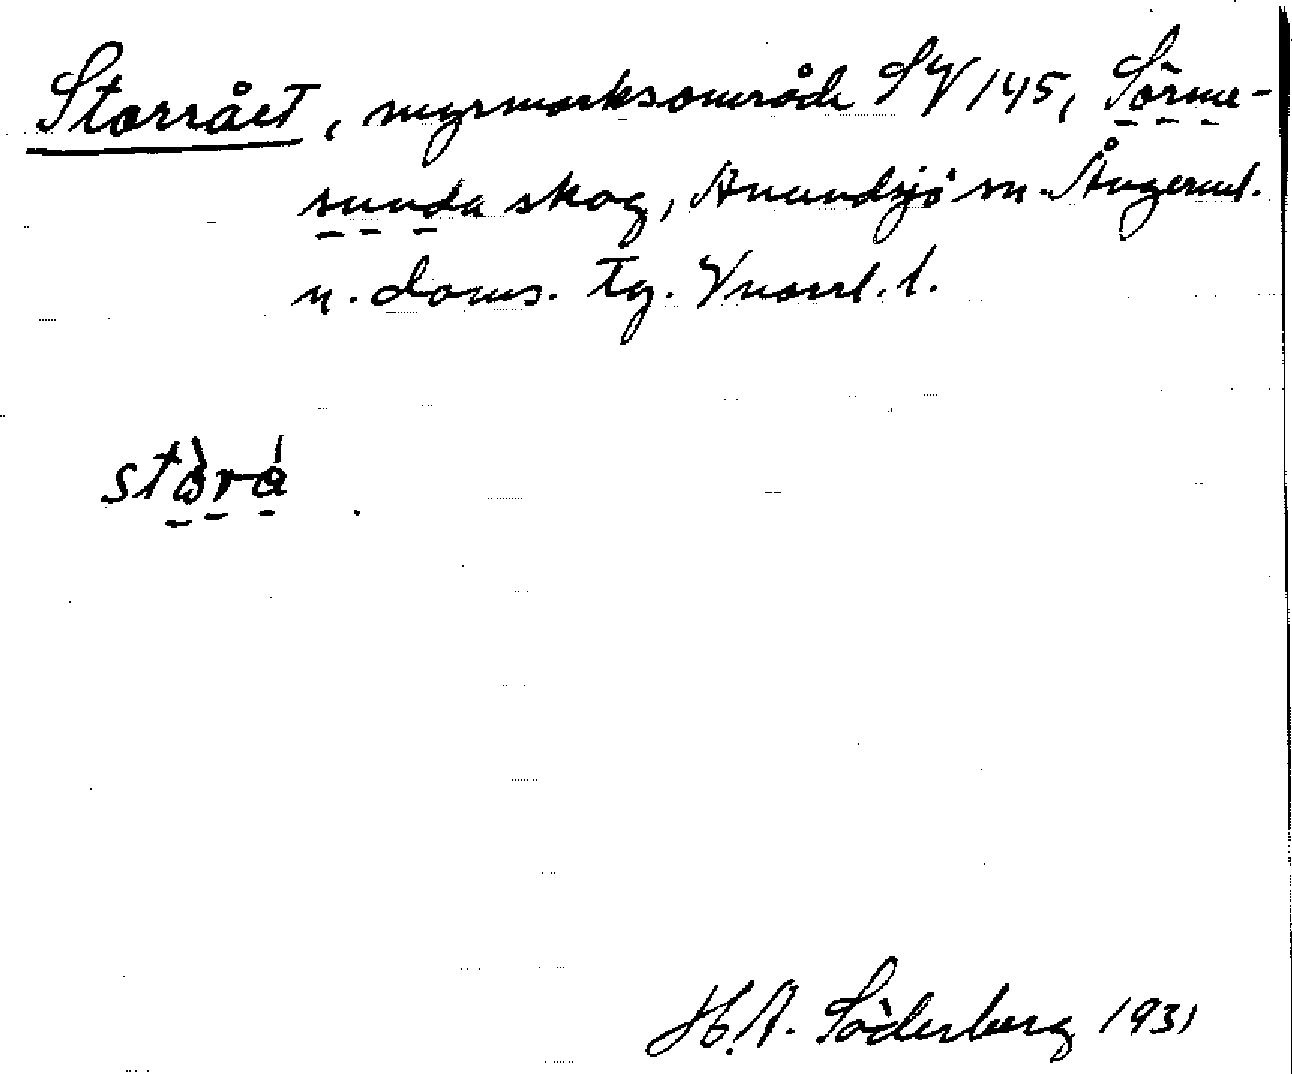 Storrået, myrmarksområde SV 145, Sörme-
sunda skog, Anundsjö sn. Ångerml.
n. doms. Tg. Vnorrl. l.
stòrá
H. A. Söderberg 1931